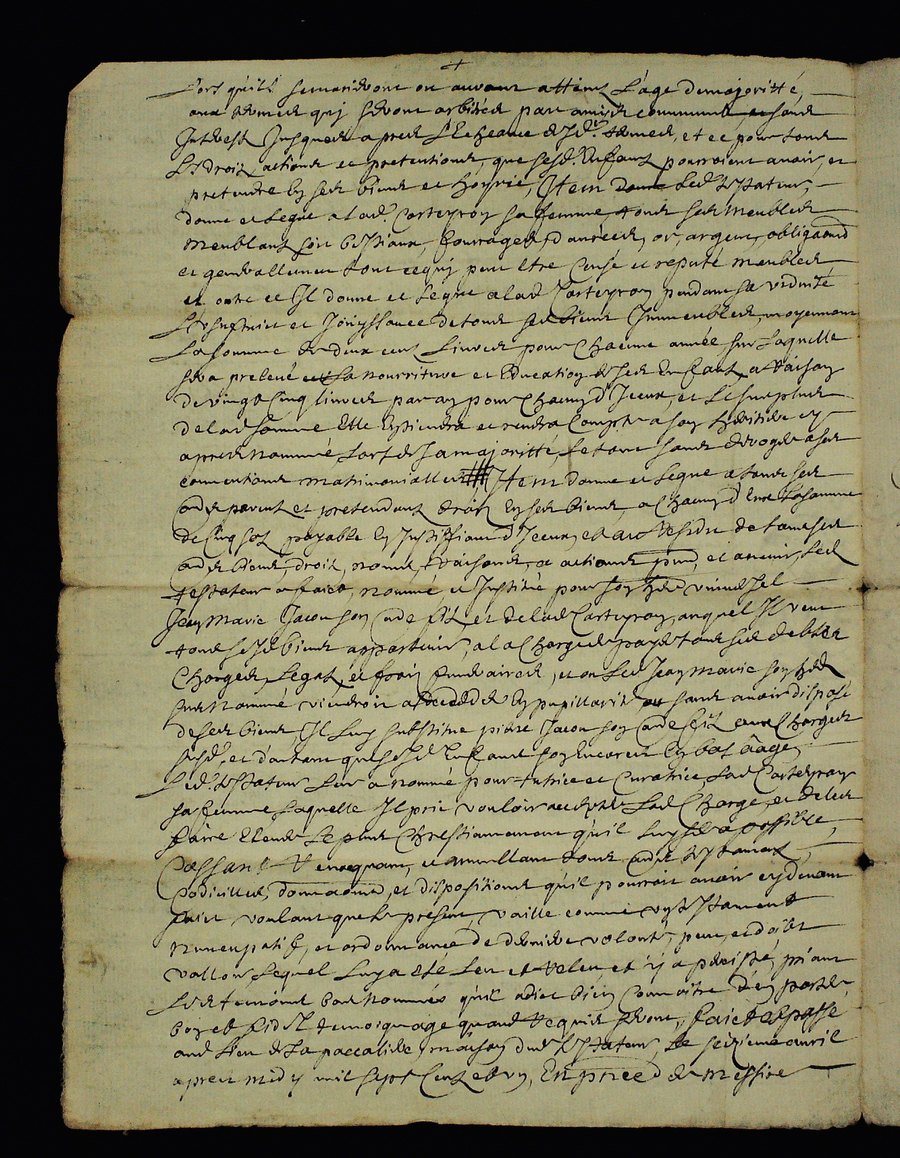 Lors qu'ils se mariront ou auront atteint l'âge de majoritté,
aux termes quy seront arbitrés par amis communs et sans
Interest Jusques apres l'Echeance desd. termes, et ce pour tous
Les droitz actions et pretentions que sesd. Enfants pourroient avoir et
pretendre en ses biens et hoyrie, Item donne Led. testateur,
donne et Legue a lad. Carteyron sa femme, tous ses meubles
meublants, bestiaux, fourrages, danrées, or, argent, obligaons
et generallement tout ce quy peut Etre Censé et reputé meubles
et outre ce Il donne et Legue a lad. Carteyron pendant sa viduité
L'usufruit et Jouyssance de tous ses biens Immeubles, moyennant
La somme de deux cens Livres pour Chacune année sur Laquelle
sera prelevé la nourriture et Education de ses Enfants a Raison
de vingt Cinq livres par an pour Chacun d'Iceux, et Le surplus
de lad. somme Elle En tiendra et rendra Compte a son heritier cy
apres nommé Lors de sa majoritté, Le tout sans deroger a ses
conventions matrimonialles Item donne et Legue a tous ses
autres parents et pretendants droit En ses biens, a Chacun d'Eux La somme
de Cinq sols payable
autres biens, droits, noms, Raisons, et actions pnts, et avenir, Led.
testateur a faict, nommé, et Institué pour son her universel
Jean Marie Jacon son fils et de lad. Carteyron, auquel Il veut
tous sesd. biens appartenir, a la Charge de payer tous ses debtes
Charges, Legats, et frais funeraires, et ou Led. Jean Marie son her
sus nommé viendroit a deceder En pupillarité ou sans avoir disposé
de ses biens, Il Luy substitue pierre Jacon son fils aux Charges
susd., et d'autant que sesd. Enfants sont Encores En bas âage,
Led. testateur Leur a nommé pour tutrice et Curatrice, Lad. Carteyron
sa femme Laquelle Il prie vouloir accepter Lad. Charge, et de les
faire Elever Le plus Chrestiennement qu'il Luy sera possible,
Cassant, Revoquant, et annullant tous autres testaments,
Codicilles, donnaons, et dispositions qu'il pourroit avoir cy devant
faict voulant que le present vaille comme un testament
nuncupatif, et ordonnance de derniere volonté, peut, et doibt
valloir, Lequel Luy a eté Leu et Releu et y a persisté, priant
Les temoins bas nommés qu'il a dict bien Connoître d'en porter
bon et fidel temoignage quand Requis seront, faict et passé
au Lieu de La maison dud. testateur, Le seizieme avril
apres midy mil sept Cens et un, En pnce de Messire